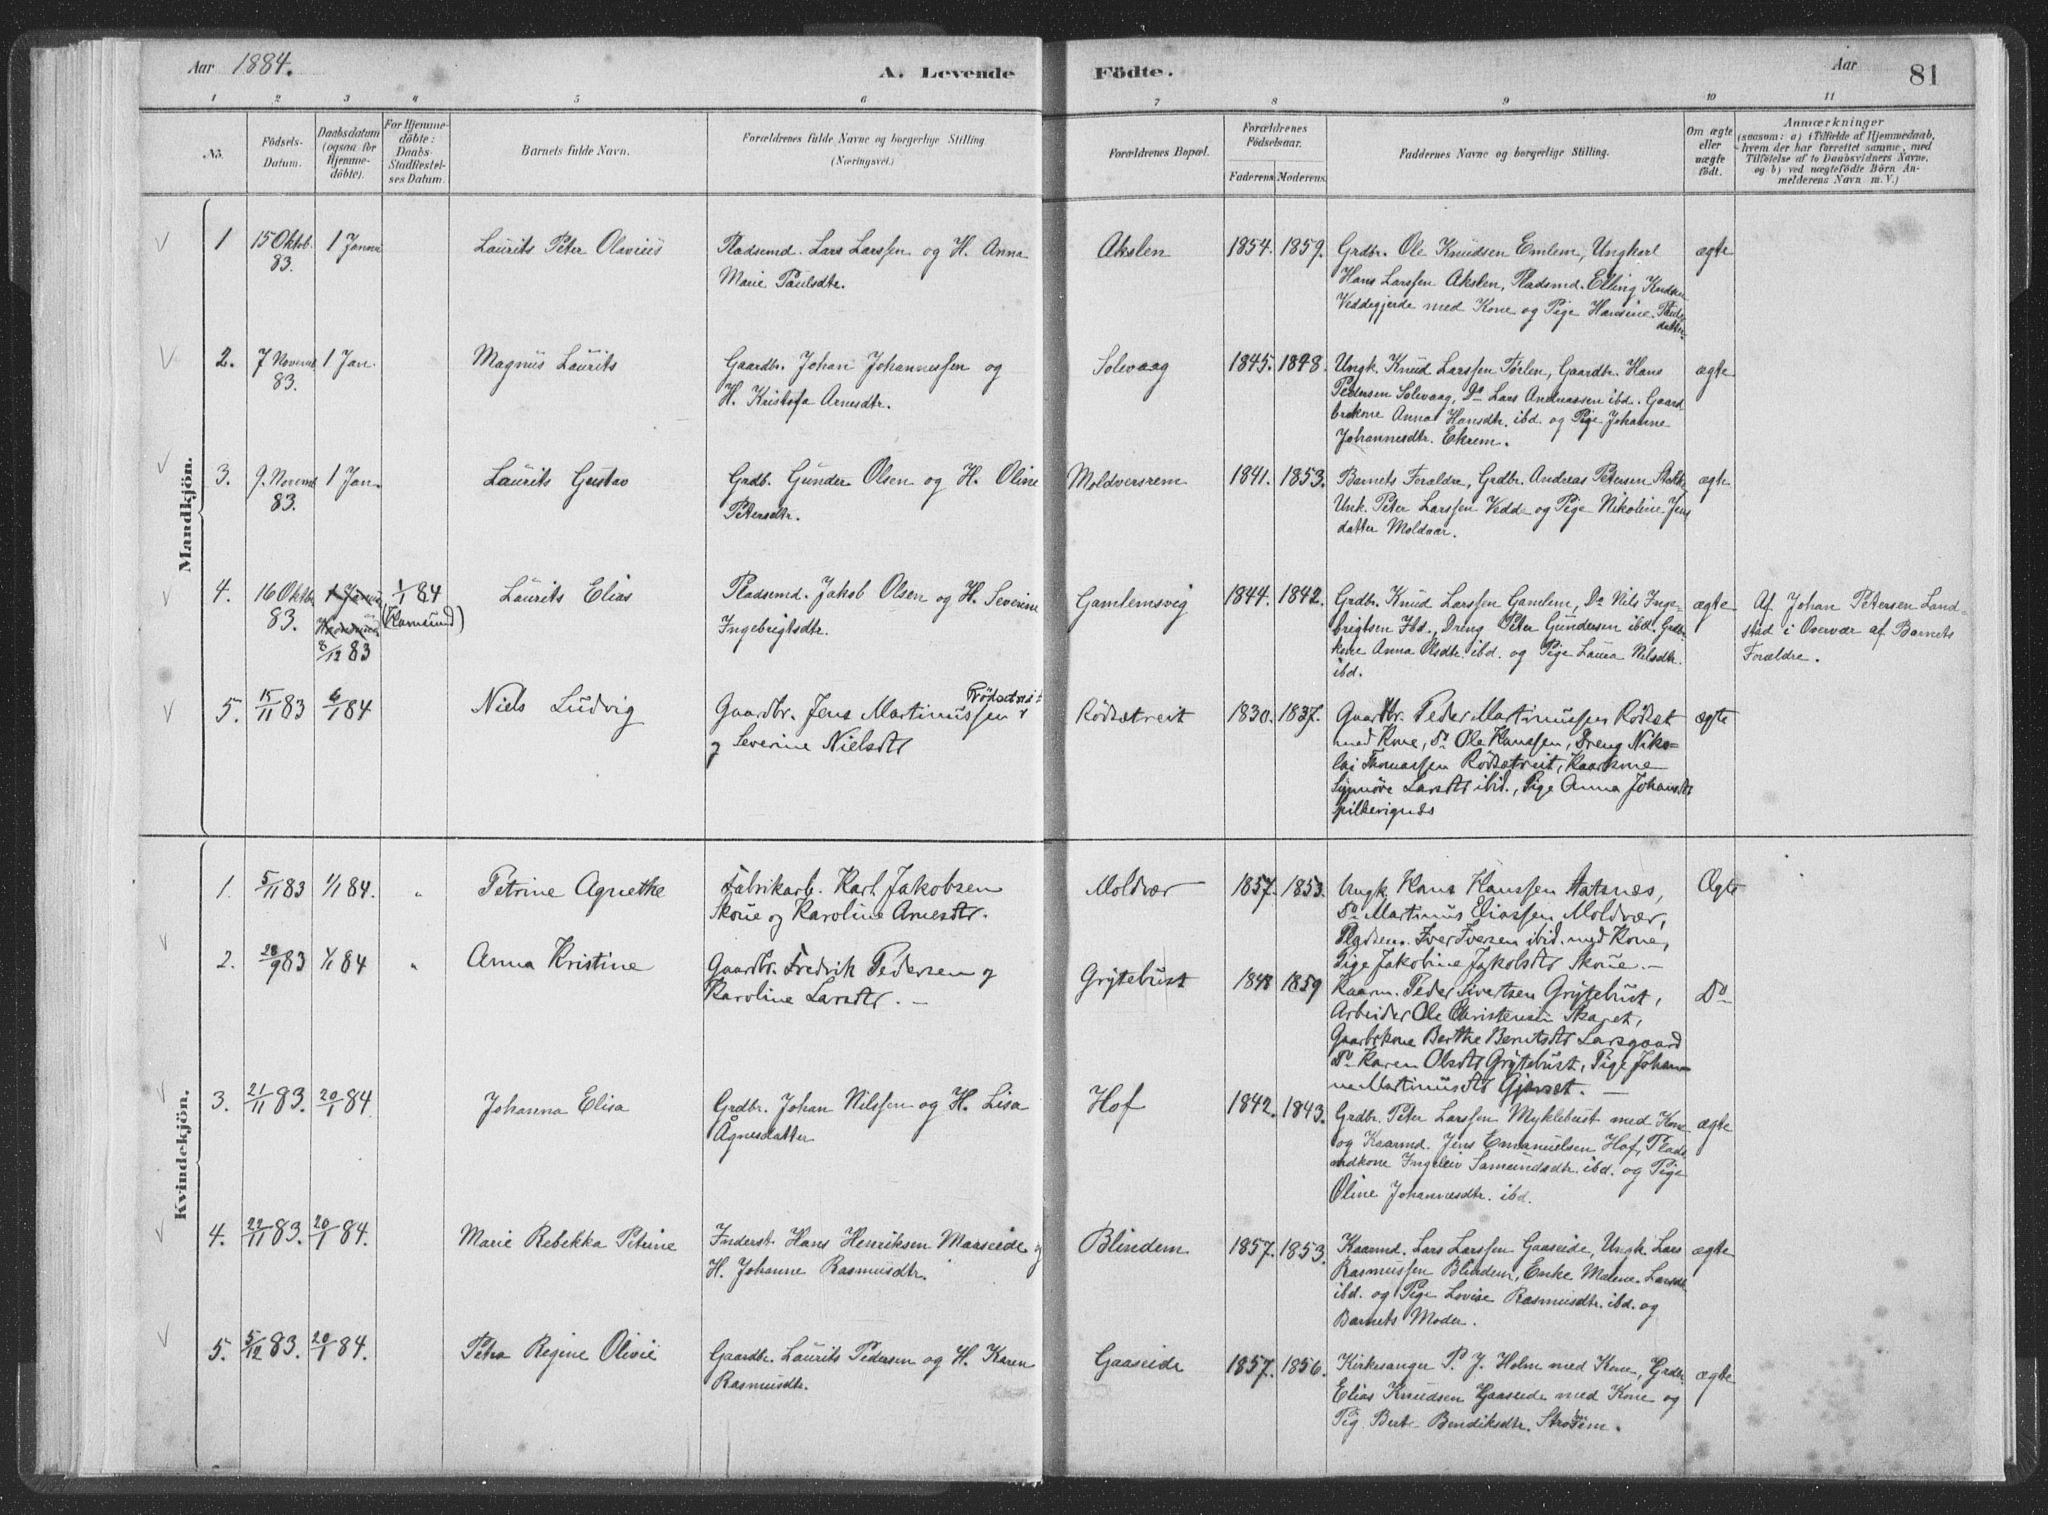 Aar 1884.
A. Levende Födte.
Aar
81
1 2 3 4 5 6 7 8 9 10 11
No.
Födsels-
Datum.
Daabsdatum
(ogsaa for
Hjemme-
döbte).
For Hjemme-
döbte:
Daabs-
Stadfæstel-
ses Datum.
Barnets fulde Navn.
Forældrenes fulde Navne og borgerlige Stilling
(Næringsvei.)
Forældrenes Bopæl.
Forældrenes
Födselsaar.
Faderens. Moderens.
Faddernes Navne og borgerlige Stilling.
Om ægte
eller
uægte
født.
Anmærkninger
(saasom: a) i Tilfælde af Hjemmedaab,
hvem der har forrettet samme, med
Tilföielse af to Daabsvidners Navne,
og b) ved uægtefödte Börn An-
melderens Navn m. V.)
Mandkjön.
1 15 Oktob. 83. 1 Janua Laurits Peter Olavius
Pladsemd. Lars Larssen og H. Anna
Marie Paulsdtr.
Akslen 1854. 1859.
Grdbr. Ole Knudsen Emlem, Ungkarl
Hans Larssen Akslen, Pladsmd. Elling Kndsen
Veddegjerde med Kone og Pige Hansine Pauls
datter.
ægte
2. 7 Novemb 83. 1 Jan. Magnus Laurits
Gaardbr. Johan Johannessen og
H. Kristofa Arnesdtr.
Solevaag 1845. 1848.
Ungk. Knud Larssen Tørlen, Gaardbr. Hans
Pedersen Solevaag, Do Lars Andreassen ibd. Gaard
brkone Anna Hansdtr. ibd. og Pige Johanne
Johannesdtr. Ekrem.
ægte
3. 9. Novemb 83. 1 Jan. Laurits Gustav
Grdb. Gunder Olsen og H. Oline
Petersdtr.
Moldversrem 1841. 1853.
Barnets Forældre, Grdbr. Andreas Petersen
Unk. Peter Larssen Vedde og Pige Nikoline Jens
datter Moldvær.
ægte
4. 16 Oktbr 83. 1 Janua 8/12 83 1/1 84
Laurits Elias
Pladsemd. Jakob Olsen og H. Severine
Ingebrigtsdtr.
Gamlemsvig 1844. 1842.
Grdbr. Knud Larssen Gamlem, Do Nils Inge-
brigtsen Ibd., Dreng Peter Gundersen ibd. Grdbr
kone Anna Olsdtr. ibd. og Pige Laura Nilsdtr.
ibd.
ægte
Af Johan Petersen Land-
stad i Overvær af Barnets
Forældre.
5. 15/11 83 6/1 84 Niels Ludvig
Gaardbr. Jens Martinussen Rødsetreit
og Severine Nielsdtr
Rødsætreit 1830. 1837.
Gaardbr. Peder Martinussen Rødset
med Kone, Do Ole Hanssen, Dreng Niko-
lai Thomassen Rødsætreit, Kaarkone
Synnøve Larsdtr ibid., Pige Anna Johansdtr
Spilkevignæs
ægte
Kvindekjön.
1. 5/11 83 1/1 84. " Petrine Agnethe
Fabrikarb. Karl Jakobsen
Skoue og Karoline Arnesdtr.
Moldvær 1857. 1853.
Ungk. Hans Hanssen Aatsnæs,
Do Martinus Eliassen Moldvær,
Pladsem. Iver Iversen ibid. med Kone,
Pige Jakobine Jakobsdtr Skoue. —
Ægte
2. 28/9 83 1/1 84 " Anna Kristine
Gaardbr. Fredrik Pedersen og
Karoline Larsdtr. —
Grytebust 1848 1859
Kaarm. Peder Sivertsen Grytebust,
Arbeider Ole Christensen Skaret,
Gaardbrkone Berthe Berntsdtr Larsgaard
Do Karen Olsdtr Grytebust, Pige Johan-
ne Martinusdtr Gjerset. —
Do
3. 21/11 83. 20/1 84 Johanna Elisa
Grdbr. Johan Nilssen og H. Lisa
Ågnesdatter
Hof 1842. 1843.
Grdbr. Peter Larssen Myklebust med Kone
og Kaarmd. Jens Emanuelsen Hof, Plads
mdkone Ingeleiv Samundsdtr. ibd. og Pige
Oline Johannesdtr. ibd.
ægte
4. 22/11 83. 20/1 84. Marie Rebekka Petrine
Inderst Hans Henriksen Marseide og
H. Johanne Rasmusdtr.
Blindem 1857. 1853.
Kaarmd. Lars Larssen Gaaseide, Ungk. Lars
Rasmussen Blindem, Enke Malene Larsdtr.
ibd. og Pige Lovise Rasmusdtr. ibd. og
Barnets Moder.
ægte
5. 5/12 83. 20/1 84. Petra Regine Olivie
Gaardbr. Laurits Pedersen og H. Karen
Rasmusdtr.
Gaaseide 1857. 1856.
Kirkesanger P. J. Holm med Kone, Grdbr.
Elias Knudsen Gaaseide med Kone og
Pig. Bert. Bendiksdtr.
ægte